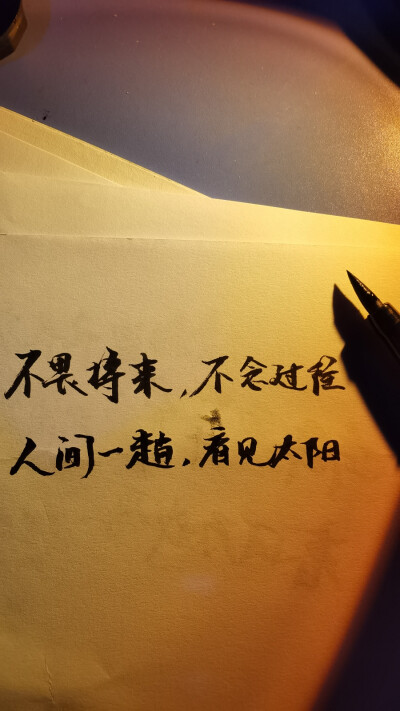 不畏将来,不念过往
人间一趟,看见太阳